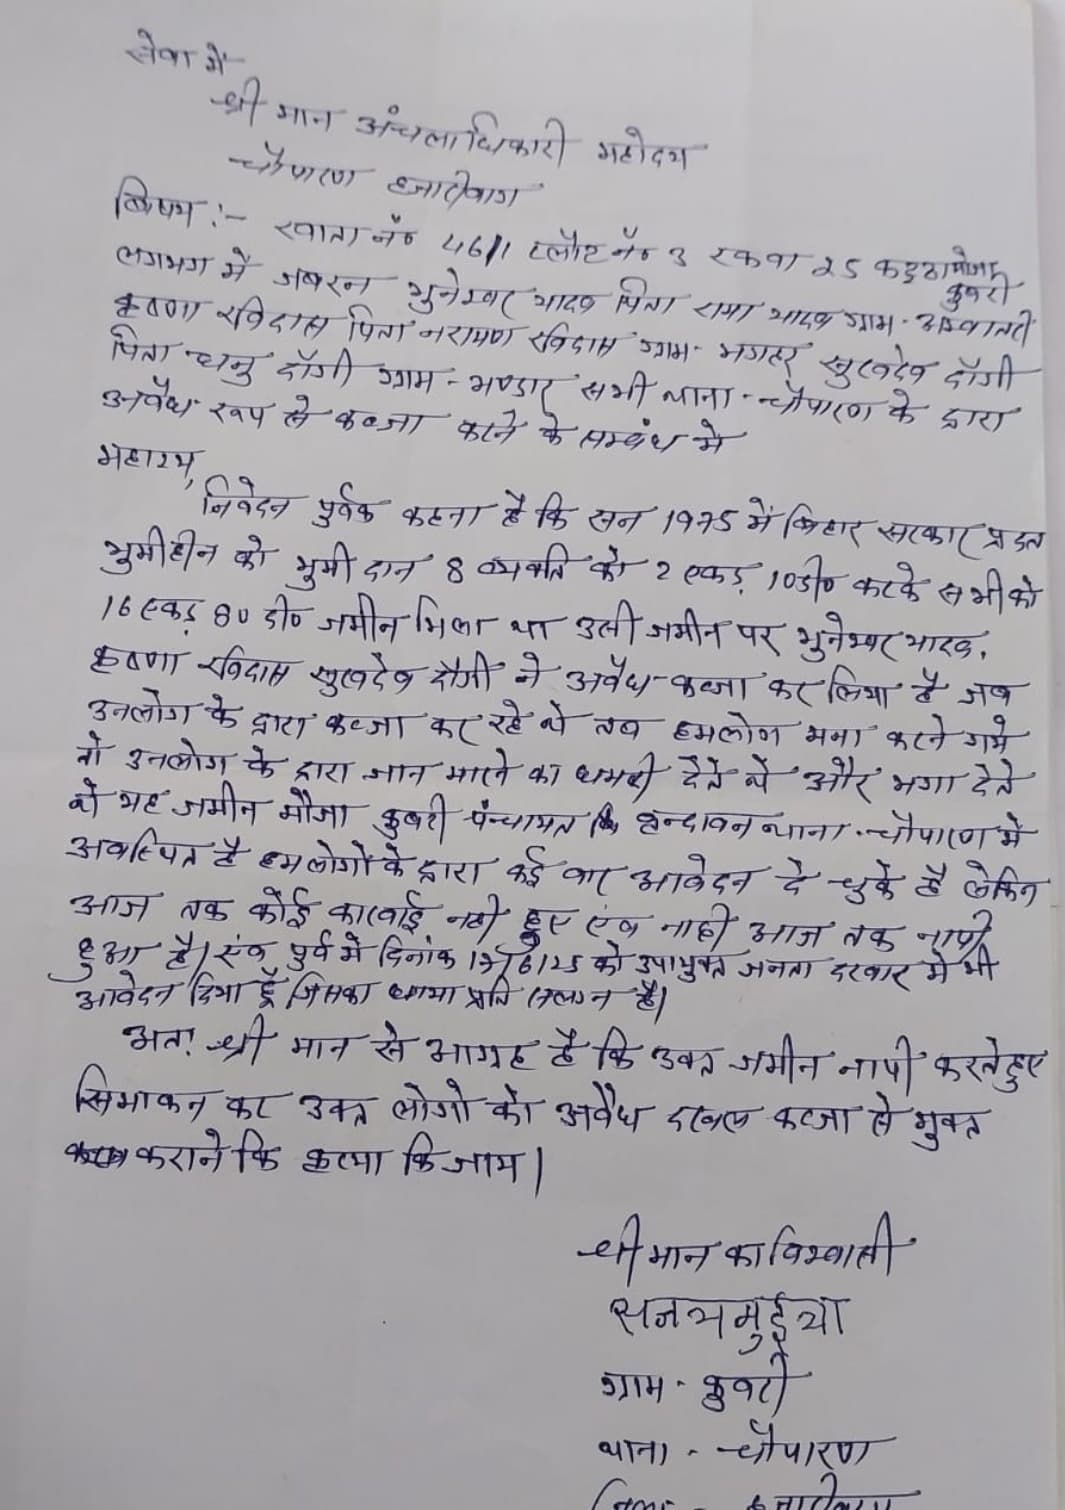 सेवा में
श्री मान अंचलाधिकारी महोदय
चौपारण हजारीबाग
बिषय :- खाता नं० 46/1 प्लौट नं० 3 रकवा 25 कट्ठा मौजा
कुबरी
लगभग में जबरन भुनेश्वर यादव पिता रामा यादव ग्राम-
कृष्णा रविदास पिता नरायण रविदास ग्राम- भगहर सुखदेव दाँगी
पिता धनु दाँगी ग्राम - भण्डार सभी थाना - चौपारण के द्वारा
अवैध रूप से कब्जा करने के सम्बंध मे
महाशय,
निवेदन पुर्वक कहना है कि सन 1975 में बिहार सरकार प्रदत
भुमीहीन को भुमी दान 8 व्यक्ति को 2 एकड़ 10डी० करके सभी को
16 एकड़ 80 डी० जमीन मिला था उसी जमीन पर भुनेश्वर यादव,
कृष्णा रविदास सुखदेव दाँगी ने अवैध कब्जा कर लिया है जब
उनलोग के द्वारा कब्जा कर रहे थे तब हमलोग मना करने गये
तो उनलोग के द्वारा जान मारने का धमकी देते थे और भगा देते
थे यह जमीन मौजा कुबरी पंन्चायत वृन्दावन थाना - चौपारण में
अवस्थित है हमलोगों के द्वारा कई बार आवेदन दे चुके है लेकिन
आज तक कोई कारवाई नही हुए एंव नाही आज तक नापी
हुआ है। एंव पुर्व मे दिनांक /6/25 को उपायुक्त जनता दरबार मे भी
आवेदन दिया हूँ जिसका छाया प्रति सलग्न है।
अतः श्री मान से आग्रह है कि उक्त जमीन नापी करते हुए
सिमाकन कर उक्त लोगो को अवैध दखल कब्जा से मुक्त
कराने कि कृप्या कि जाय।
श्री मान का विश्वासी
सजय भुईया
ग्राम - कुबरी
थाना - चौपारण